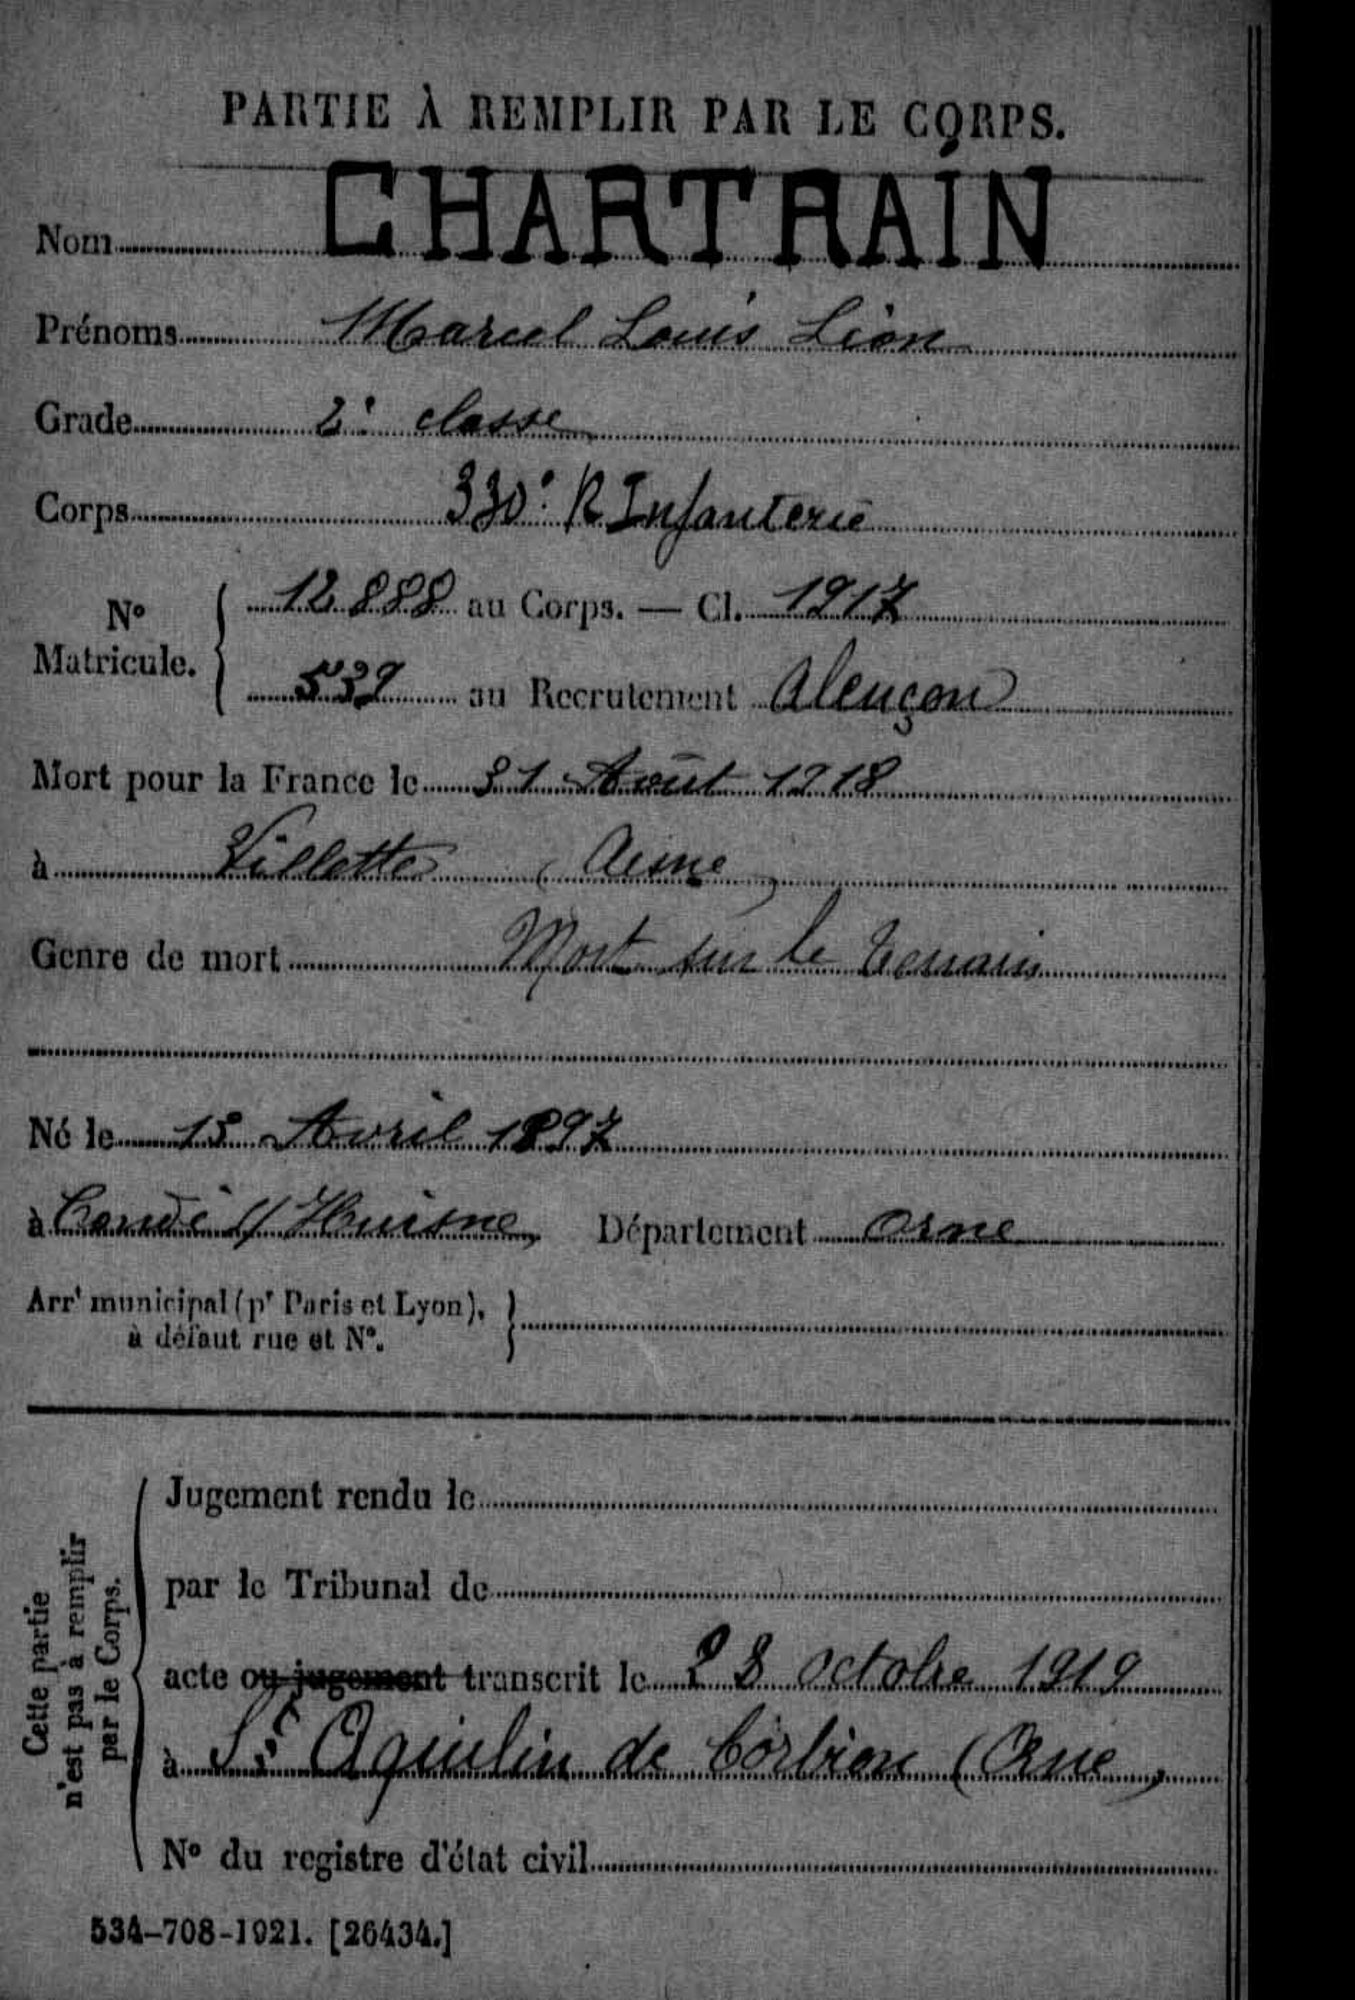 PARTIE À REMPLIR PAR LE CORPS.
Nom CHARTRAIN
Prénoms Marcel Louis Léon
Grade 2e classe
Corps 330e R Infanterie
No Matricule. 12888 au Corps. — Cl. 1917
539 au Recrutement Alençon
Mort pour la France le 31 Août 1918
à Villette (Aisne)
Genre de mort Mort sur le terrain
Né le 15 Avril 1897
à Condé s/ Huisne, Département Orne
Arrt municipal (pr Paris et Lyon),
à défaut rue et No.
Cette partie
n'est pas à remplir
par le Corps.
Jugement rendu le
par le Tribunal de
acte ou jugement transcrit le 28 octobre 1919
à St Aquilin de Corbion (Orne)
No du registre d'état civil
534-708-1921. [26434.]